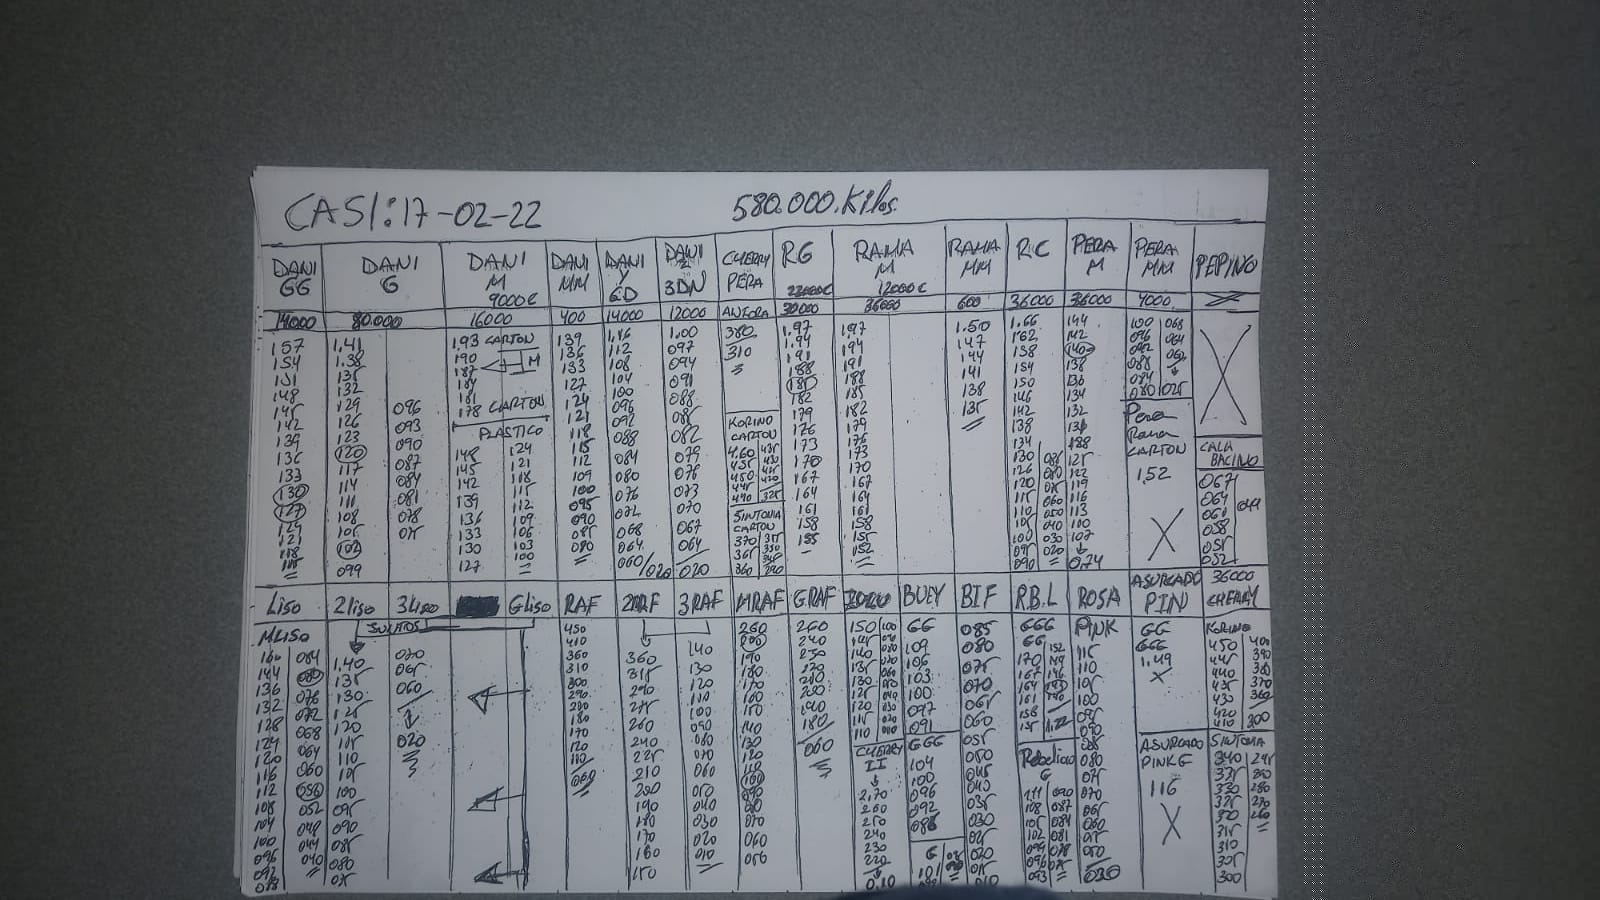 CASI: 17-02-22
580.000.Kilos.
DANI GG
DANI G
DANI M 9000C
DANI MM
DANI Y GD
DANI 2 3DN
CHERRY PERA
RG
RAMA M 12000C
RAMA MM
RC
PERA M
PERA MM
PEPINO
14000
80.000
16000
400
14000
12000
ANGORA
30000
36000
600
36000
36000
4000
157
154
151
148
145
142
139
136
133
130
127
124
121
118
115
1.41
1.38
135
132
129
126
123
120
117
114
111
108
105
102
099
096
093
090
087
084
081
078
075
1.93 CARTON
190
187
M
184
181
178 CARTON
PLASTICO
148
145
142
139
136
133
130
127
124
121
118
115
112
109
106
103
100
139
136
133
127
124
121
118
115
112
109
100
095
090
085
080
1.16
112
108
104
100
096
092
088
084
080
076
072
068
064
060/020
1.00
097
094
091
088
085
082
079
076
073
070
067
064
020
380
310
KORINO CARTON
4.60
455
450
445
440
SINTONIA CARTON
370
365
360
1.97
194
191
188
185
182
179
176
173
170
167
164
161
158
155
197
194
191
188
185
182
179
176
173
170
167
164
161
158
155
152
1.50
147
144
141
138
135
1.66
162
158
154
150
146
142
138
134
130
126
120
115
110
105
100
095
090
144
142
140
138
136
134
132
125
122
119
116
113
100
107
0.74
100
096
092
088
084
080
068
064
060
025
Pera Rama CARTON
1,52
CALA BACINO
067
064
061
058
055
052
049
Liso
2 liso
3 Liso
G liso
RAF
2RAF
3 RAF
MRAF
G.RAF
BUEY
BIF
R.B.L
ROSA
ASURCADO PINK
36000 CHERRY
M Liso
SURTOS
160
144
136
132
128
124
120
116
112
108
104
100
096
092
088
084
080
076
072
068
064
060
056
052
048
044
040
1.40
135
130
125
120
115
110
105
100
095
090
085
080
075
070
065
060
020
450
410
360
310
300
290
200
180
170
120
110
060
360
315
290
275
260
240
225
210
200
190
180
170
160
150
140
130
120
110
100
090
080
070
060
050
040
030
020
010
260
200
190
180
170
160
150
140
130
120
110
100
090
080
070
060
050
260
240
230
220
210
200
190
180
060
150
145
140
135
130
125
120
115
110
CHERRY II
2,70
260
250
240
230
220
0,10
GG
109
106
103
100
097
091
GGG
104
100
096
092
088
G
101
085
080
075
070
065
060
055
050
045
040
035
030
025
020
015
010
GGG
GG
170
167
164
161
158
155
152
149
146
143
140
1.22
Rebelion G
111
108
105
102
099
096
093
090
087
084
081
078
075
PINK
115
110
105
100
095
090
085
080
075
070
065
060
055
050
030
GG
GGG
1.49
ASURCADO PINK G
116
KORINO
450
445
440
435
430
420
410
400
390
380
370
360
300
SINTONIA
340
335
330
325
320
315
310
305
300
295
290
280
270
260